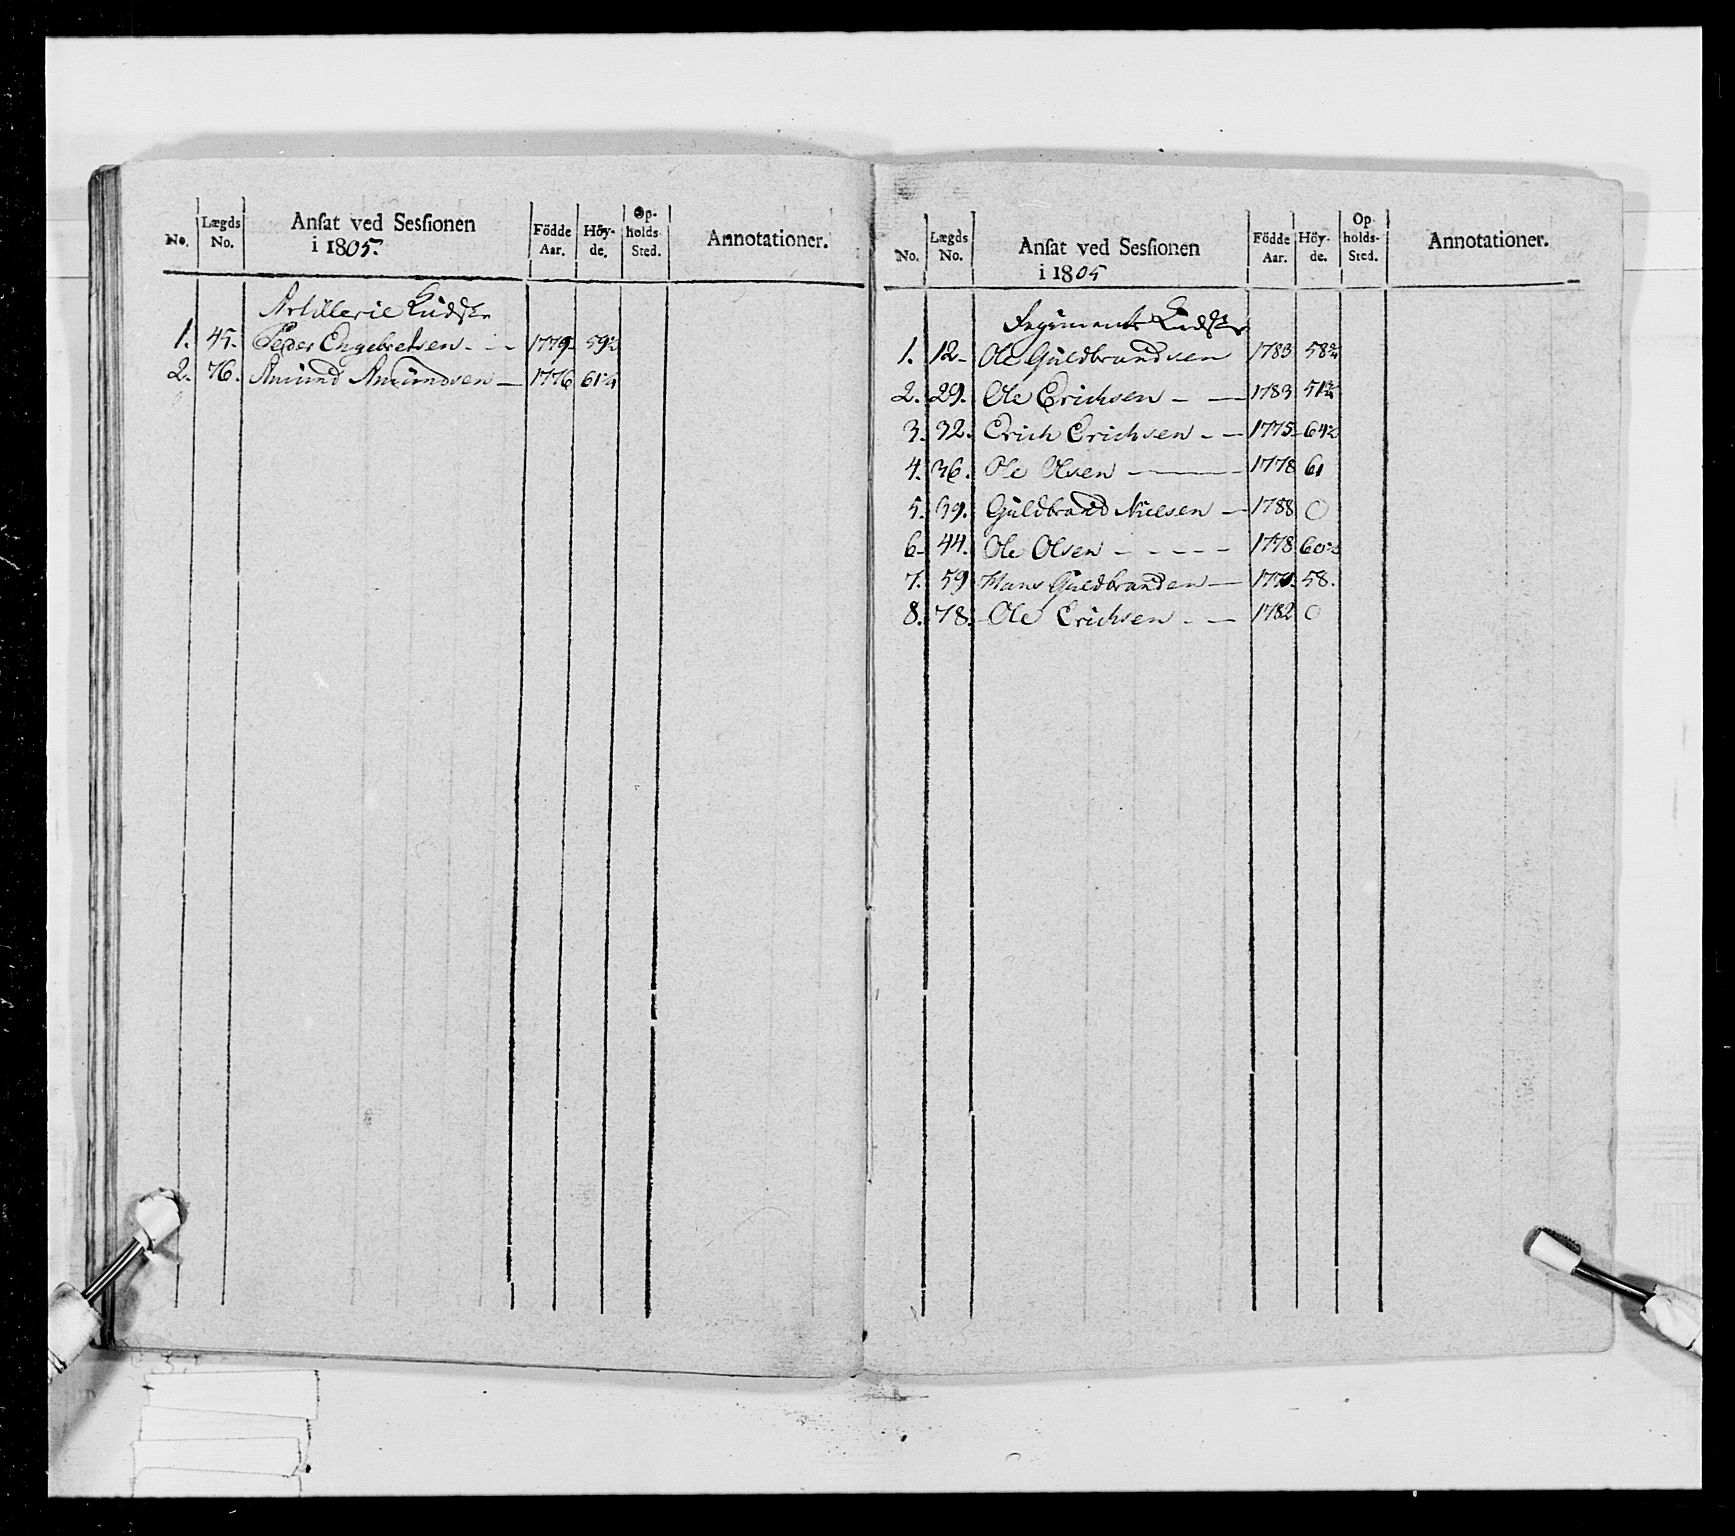 No. Lægds No. Ansat ved Sessionen i 1805. Födde Aar. Höyde. Opholds-Sted. Annotationer.
Artillerie Kudske
1. 45. Peder Engebretsen - - - 1779 59½
2. 76. Amund Amundsen — 1776 61¼
No. Lægds No. Ansat ved Sessionen i 1805 Födde Aar. Höyde. Opholds-Sted. Annotationer.
Regiments Kudske
1. 12- Ole Guldbrandsen 1783 58¾
2. 29. Ole Erichsen - — 1783 51¾
3. 32. Erich Erichsen - — 1775 64½
4. 36. Ole Olsen — 1778 61
5. 39. Guldbrand Nielsen — 1788 0
6- 44. Ole Olsen - - - - - 1778 60½
7. 59 Hans Guldbranden — 58.
8. 78. Ole Erichsen - — 1782 0